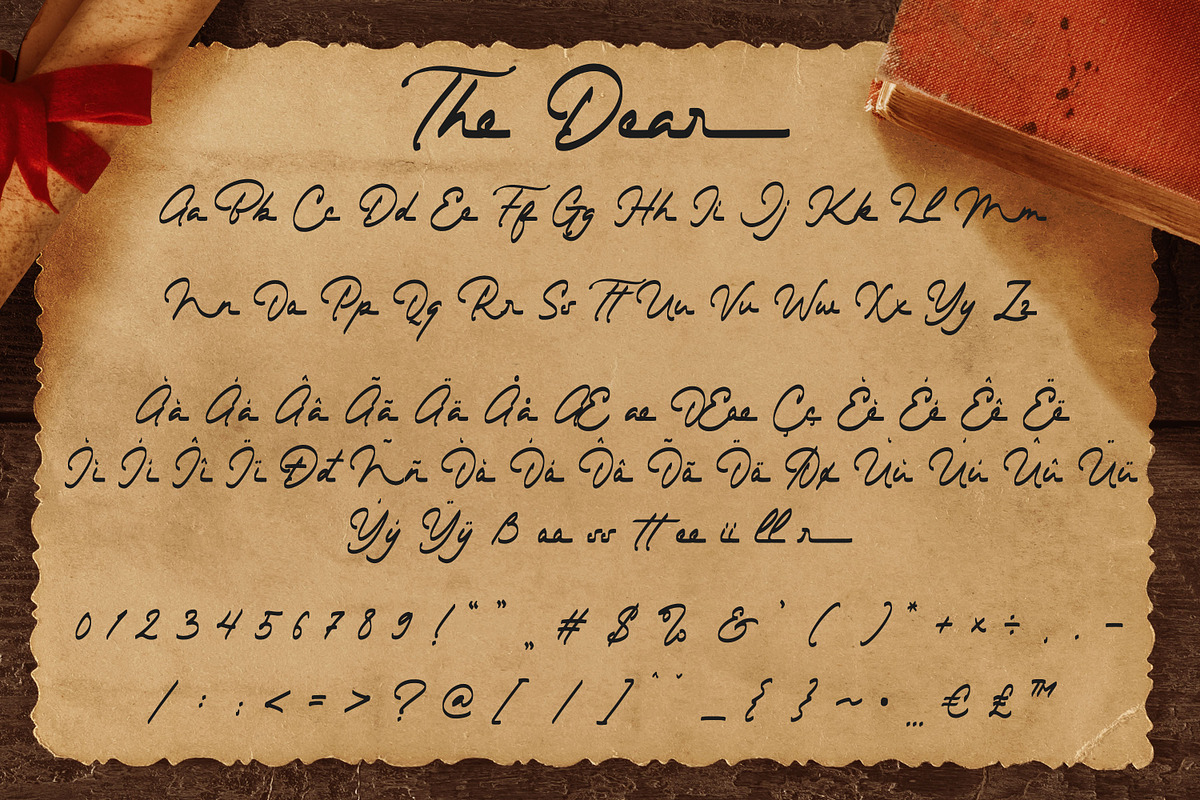 The Dear
Aa Bb Cc Dd Ee Ff Gg Hh Ii Jj Kk Ll Mm
Nn Oo Pp Qq Rr Ss Tt Uu Vv Ww Xx Yy Zz
Àà Áá Ââ Ãã Ää Åå Æ æ Œœ Çç Èè Éé Êê Ëë
Ìì Íí Îî Ïï Đđ Ññ Òò Óó Ôô Õõ Öö Øø Ùù Úú Ûû Üü
Ýý Ÿÿ ß aa ss tt ee ii ll r
0 1 2 3 4 5 6 7 8 9 ! “ ” „ # $ % & ' ( ) * + × ÷ , . -
/ : ; < = > ? @ [ / ] ˆ ˇ _ { } ~ • … € £ ™